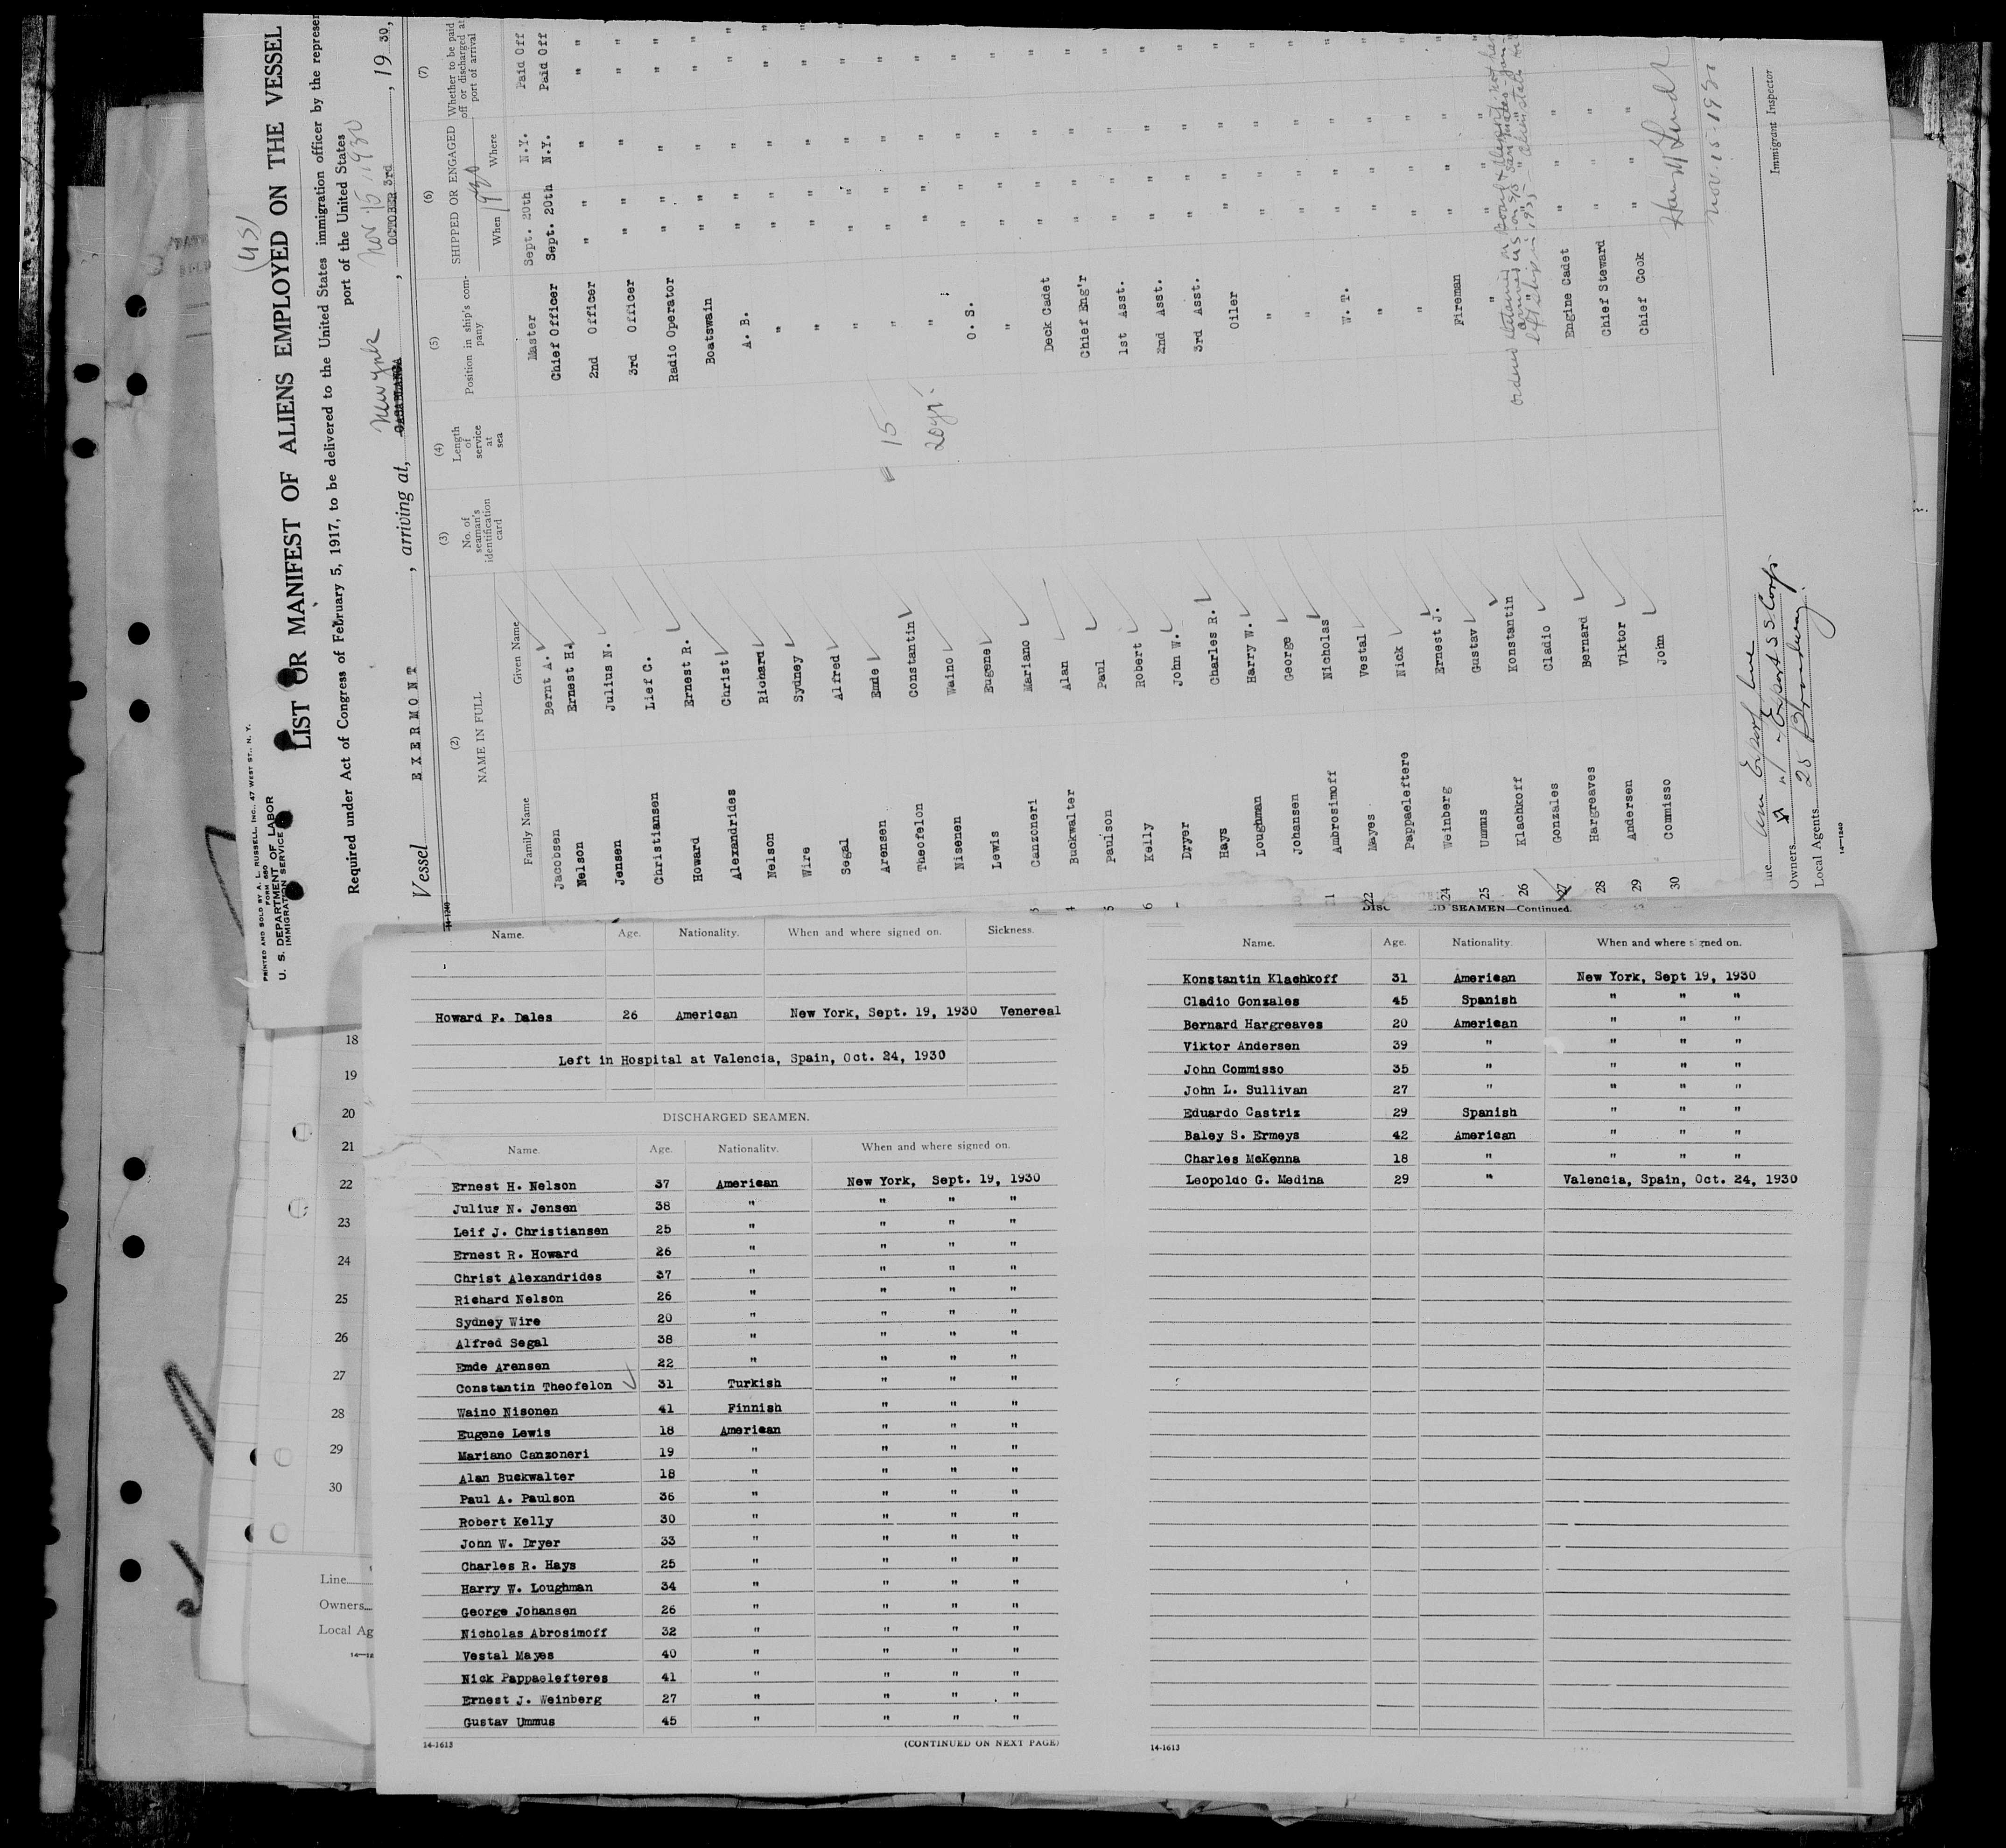 (45)
PRINTED AND SOLD BY A. L. RUSSELL, INC., 47 WEST ST., N. Y.
FORM 680
U. S. DEPARTMENT OF LABOR
IMMIGRATION SERVICE
LIST OR MANIFEST OF ALIENS EMPLOYED ON THE VESSEL
Required under Act of Congress of February 5, 1917, to be delivered to the United States immigration officer by the represen
port of the United States
Vessel EXERMONT, arriving at, New York CASABLANCA, Nov 15 1930 OCTOBER 3rd, 1930,
(2) (3) (4) (5) (6) (7)
NAME IN FULL
Family Name Given Name
No. of seaman's identification card
Length of service at sea
Position in ship's company
SHIPPED OR ENGAGED
When 1930 Where
Whether to be paid off or discharged at port of arrival
Jacobsen Bernt A. Master Sept. 20th N.Y. Paid Off
Nelson Ernest H. Chief Officer Sept. 20th N.Y. Paid Off
Jensen Julius N. 2nd Officer " " "
Christiansen Lief C. 3rd Officer " " "
Howard Ernest R. Radio Operator " " "
Alexandrides Christ Boatswain " " "
Nelson Richard A. B. " " "
Wire Sydney " " " "
Segal Alfred " " " "
Arensen Emde " " " "
Theofelon Constantin 15 " " " "
Nisenen Waino 20 yr. " " " "
Lewis Eugene O. S. " " "
Canzoneri Mariano " " " "
Buckwalter Alan Deck Cadet " " "
Paulson Paul Chief Eng'r " " "
Kelly Robert 1st Asst. " " "
Dryer John W. 2nd Asst. " " "
Hays Charles R. 3rd Asst. " " "
Loughman Harry W. Oiler " " "
Johansen George " " " "
Ambrosimoff Nicholas " " " "
Mayes Vestal W. T. " " "
Pappaeleftere Nick " " " "
24 Weinberg Ernest J. " " " "
25 Ummus Gustav Fireman " " "
26 Klachkoff Konstantin " " "
27 Gonzales Cladio
28 Hargreaves Bernard Engine Cadet " "
29 Andersen Viktor Chief Steward " "
30 Commisso John Chief Cook " "
Nov. 15-1930
Immigrant Inspector
Am Export Line
Owners Export S S Corp
Local Agents 25 Broadway
14-1240
Name. Age. Nationality. When and where signed on. Sickness.
Howard F. Dales 26 American New York, Sept. 19, 1930 Venereal
Left in Hospital at Valencia, Spain, Oct. 24, 1930
DISCHARGED SEAMEN.
Name. Age. Nationality. When and where signed on.
Ernest H. Nelson 37 American New York, Sept. 19, 1930
Julius N. Jensen 38 " " " "
Leif J. Christiansen 25 " " " "
Ernest R. Howard 26 " " " "
Christ Alexandrides 37 " " " "
Richard Nelson 26 " " " "
Sydney Wire 20 " " " "
Alfred Segal 38 " " " "
Emde Arensen 22 " " " "
Constantin Theofelon 31 Turkish " " "
Waino Nisonen 41 Finnish " " "
Eugene Lewis 18 American " " "
Mariano Canzoneri 19 " " " "
Alan Buckwalter 18 " " " "
Paul A. Paulson 36 " " " "
Robert Kelly 30 " " " "
John W. Dryer 33 " " " "
Charles R. Hays 25 " " " "
Harry W. Loughman 34 " " " "
George Johansen 26 " " " "
Nicholas Abrosimoff 32 " " " "
Vestal Mayes 40 " " " "
Nick Pappaelefteres 41 " " " "
Ernest J. Weinberg 27 " " " "
Gustav Ummus 45 " " " "
14-1613 (CONTINUED ON NEXT PAGE)
SEAMEN—Continued.
Name. Age. Nationality. When and where signed on.
Konstantin Klachkoff 31 American New York, Sept 19, 1930
Cladio Gonzales 45 Spanish " " "
Bernard Hargreaves 20 American " " "
Viktor Andersen 39 " " " "
John Commisso 35 " " " "
John L. Sullivan 27 " " " "
Eduardo Castriz 29 Spanish " " "
Baley S. Ermeys 42 American " " "
Charles McKenna 18 " " " "
Leopoldo G. Medina 29 " Valencia, Spain, Oct. 24, 1930
14-1613
18
19
20
21
22
23
24
25
26
27
28
29
30
Line
Owners
Local Ag